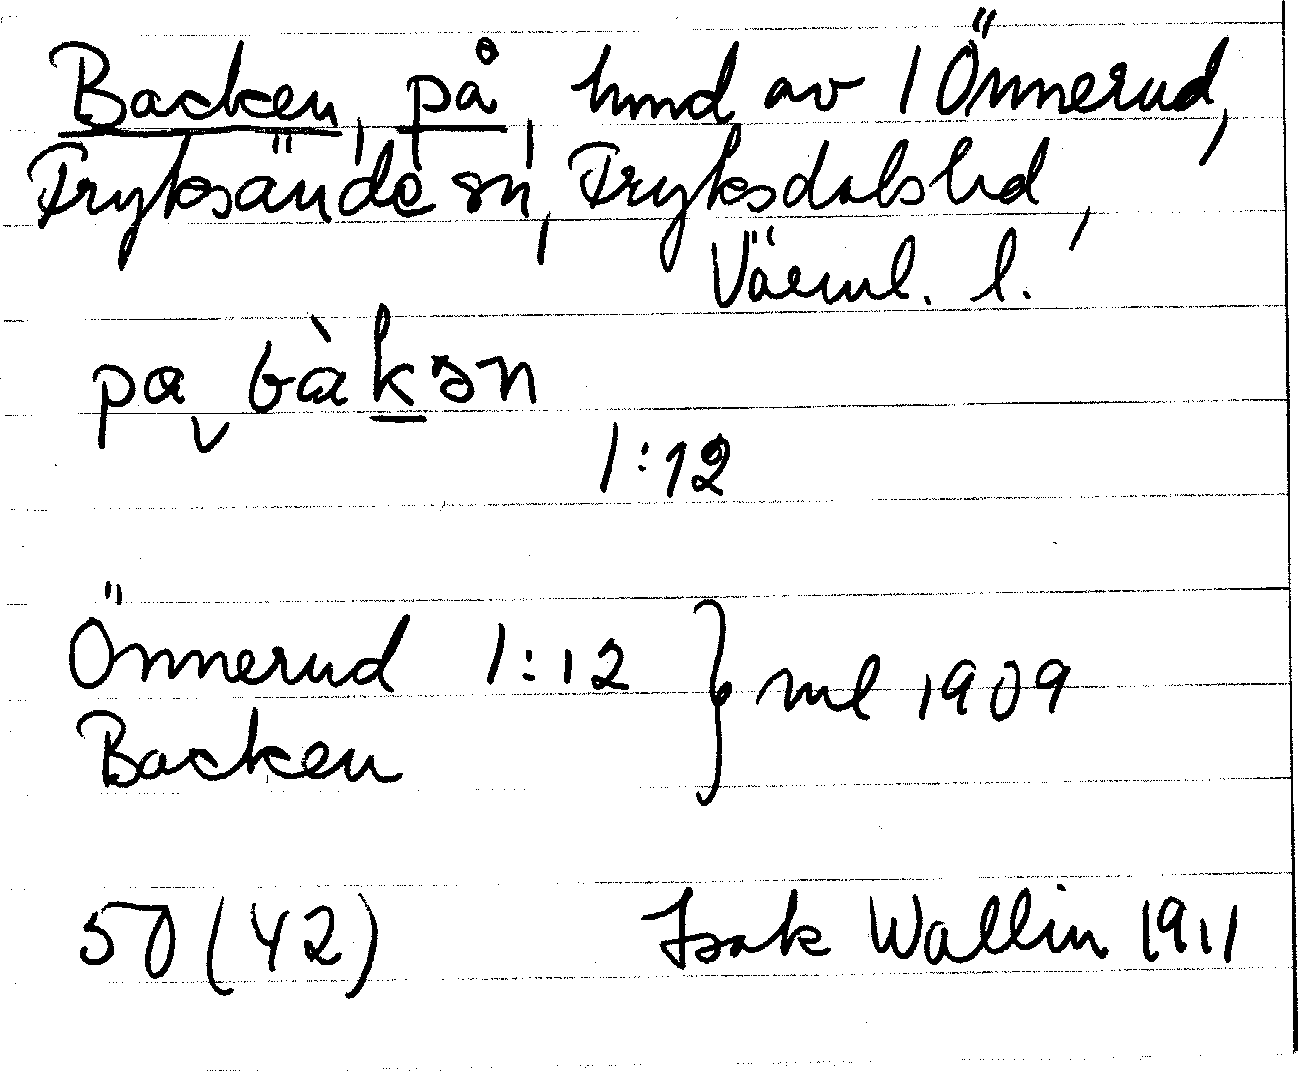 Backen, på, hmd av 1 Önnerud,
Fryksände sn, Fryksdals hd,
Värml. l.
pa bàkən
1:12
Önnerud 1:12
Backen } ml 1909
50 (42) Isak Wallin 1911